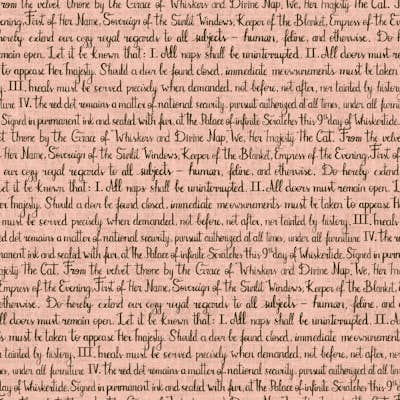 rom the velvet throne by the Grace of Whiskers and Divine Nap, We, Her Majesty The Cat.
First of Her Name, Sovereign of the Sunlit Windows, Keeper of the Blanket, Empress of the Eve
hereby extend our cozy royal regards to all subjects – human, feline, and otherwise. Do he
emain open. Let it be known that: I. All naps shall be uninterrupted. II. All doors must rem
to appease Her Majesty. Should a door be found closed, immediate meowsurements must be taken
y. III. meals must be served precisely when demanded, not before, not after, nor tainted by history
ture IV. the red dot remains a matter of national security, pursuit authorized at all times, under all furnitu
Signed in purrmanent ink and sealed with fur, at The Palace of infinite Scratches this 9th day of Whiskertide.
throne by the Grace of Whiskers and Divine Nap, We, Her Majesty The Cat. From the velvet
Her Name, Sovereign of the Sunlit Windows, Keeper of the Blanket, Empress of the Evening, First of
our cozy royal regards to all subjects – human, feline, and otherwise. Do hereby extend
et it be known that: I. All naps shall be uninterrupted. II. All doors must remain open. L
er Majesty. Should a door be found closed, immediate meowsurements must be taken to appease H
must be served precisely when demanded, not before, not after, nor tainted by history. III. meals
ed dot remains a matter of national security, pursuit authorized at all times, under all furniture IV. the r
anent ink and sealed with fur, at The Palace of infinite Scratches this 9th day of Whiskertide. Signed in purrm
ajesty The Cat. From the velvet throne by the Grace of Whiskers and Divine Nap, We, Her M
Empress of the Evening, First of Her Name, Sovereign of the Sunlit Windows, Keeper of the Blanket,
otherwise. Do hereby extend our cozy royal regards to all subjects – human, feline, and
ll doors must remain open. Let it be known that: I. All naps shall be uninterrupted. II. A
s must be taken to appease Her Majesty. Should a door be found closed, immediate meowsurements
tainted by history. III. meals must be served precisely when demanded, not before, not after, nor
es, under all furniture IV. the red dot remains a matter of national security, pursuit authorized at all tim
day of Whiskertide. Signed in purrmanent ink and sealed with fur, at The Palace of infinite Scratches this 9th